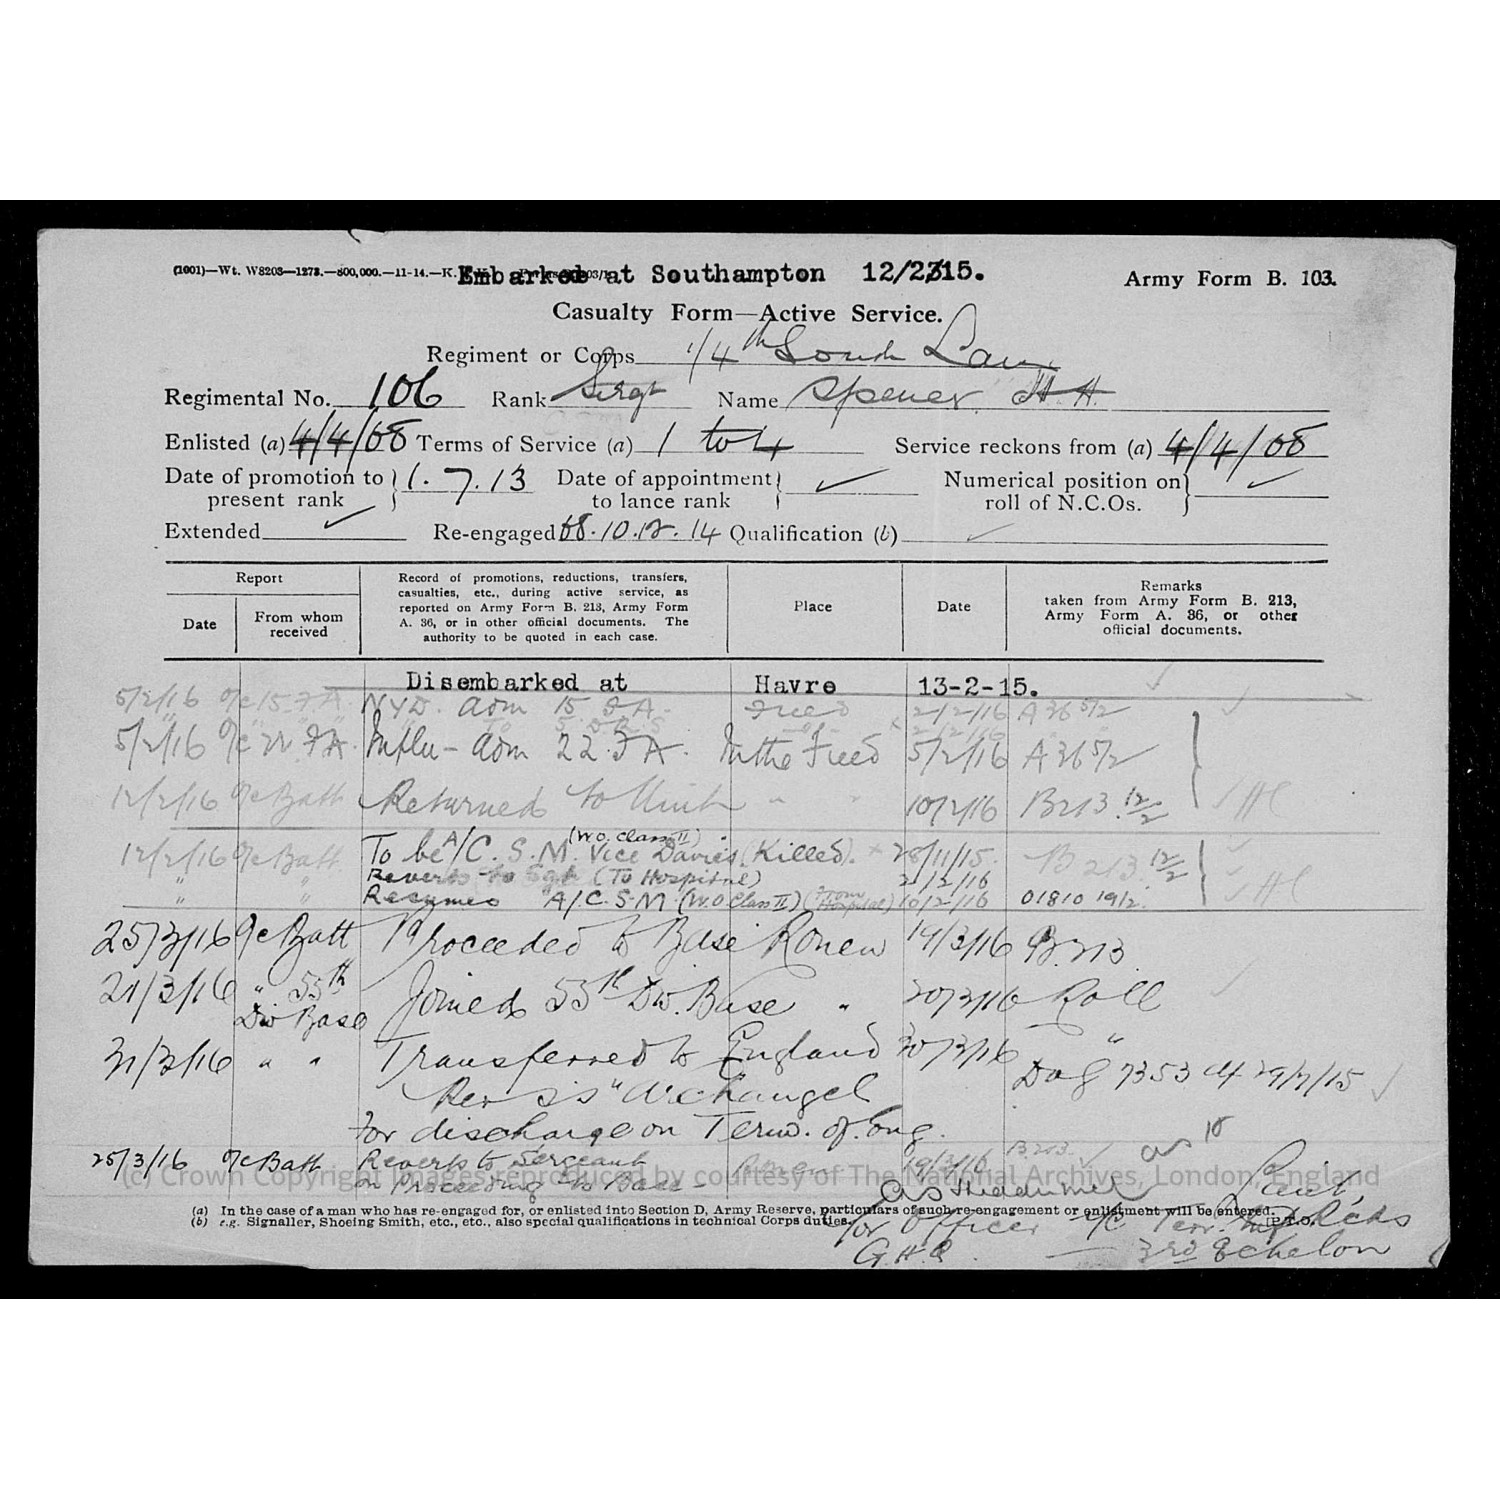 (1001)—Wt. W8203—1273.—800,000.—11-14.—K.
Embarked at Southampton 12/2/15.
Army Form B. 103.
Casualty Form—Active Service.
Regiment or Corps 1/4th South Lan
Regimental No. 106 Rank Sergt Name Spencer H. H.
Enlisted (a) 4/4/08 Terms of Service (a) 1 to 4 Service reckons from (a) 4/4/08
Date of promotion to present rank 1.7.13 Date of appointment to lance rank ✓ Numerical position on roll of N.C.Os. ✓
Extended ✓ Re-engaged 10.12.14 Qualification (b)
Report
Date
From whom received
Record of promotions, reductions, transfers, casualties, etc., during active service, as reported on Army Form B. 213, Army Form A. 36, or in other official documents. The authority to be quoted in each case.
Place
Date
Remarks taken from Army Form B. 213, Army Form A. 36, or other official documents.
Disembarked at Havre 13-2-15.
5/2/16 O/c 15 F A. NYD. adm 15 F A. Field 2/2/16 A 36 5/2
5/2/16 O/c 22 F A. Influ- adm 22 F A. In the Field 5/2/16 A 36 5/2
12/2/16 O/c Batt Returned to Unit " " 10/2/16 B213 12/2
12/2/16 O/c Batt To be A/C. S. M. (W.O. Class II) Vice Davies (Killed). 28/11/15. B 213 12/2
" " Reverts to Sgt (To Hospital) 2/2/16
" " Resumes A/C.S.M. (W.O Class II) (From Hospital) 10/2/16 01810 19/2.
25/3/16 O/c Batt Proceeded to Base Rouen 14/3/16 B.213
21/3/16 " 55th Div Base Joined 55th Div. Base " 20/3/16 Roll
31/3/16 " " Transferred to England 30/3/16 "
Per SS "Archangel" DAG 7353 29/7/15
For discharge on Term. of. Eng.
25/3/16 O/c Batt Reverts to Sergeant Rouen 19/3/16 B.213
on Proceeding to Base
(c) Crown Copyright Images reproduced by courtesy of The National Archives, London, England
Lieut,
(a) In the case of a man who has re-engaged for, or enlisted into Section D, Army Reserve, particulars of such re-engagement or enlistment will be entered.
(b) e.g. Signaller, Shoeing Smith, etc., etc., also special qualifications in technical Corps duties. [P.T.O.
for Officer i/c Terr. Inf Records
G.H.Q. — 3rd Echelon